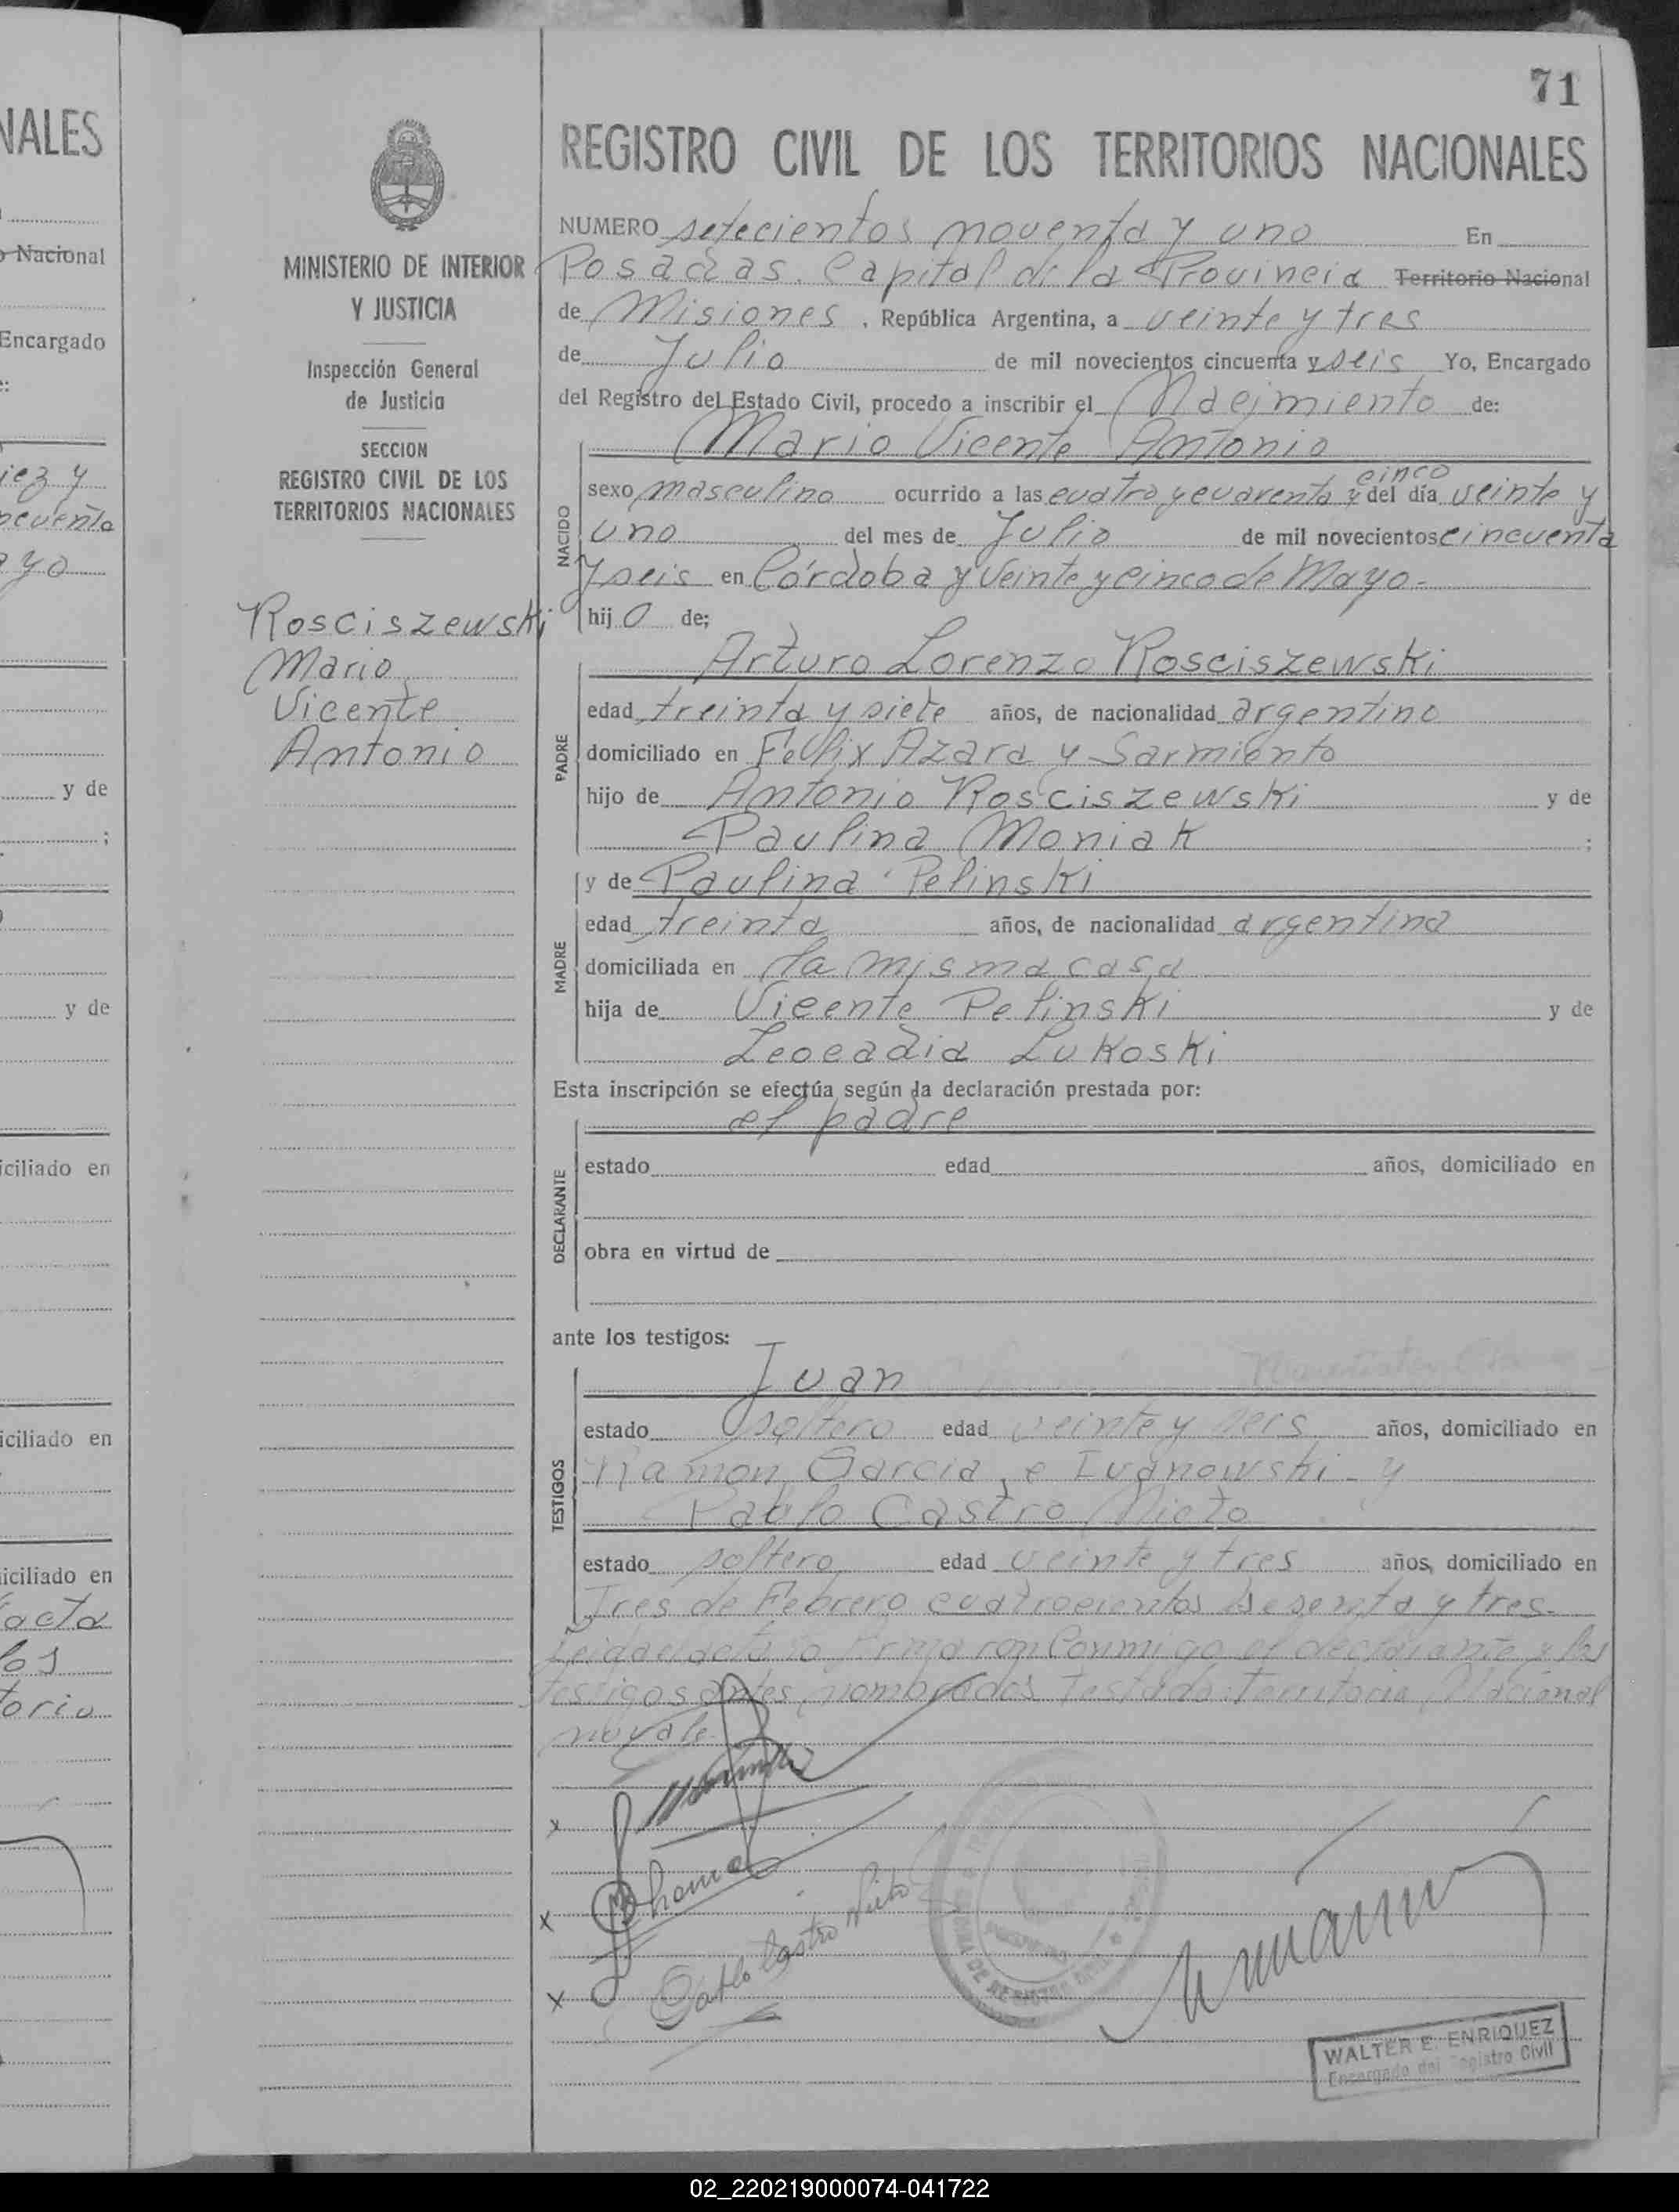 71
NALES
REGISTRO CIVIL DE LOS TERRITORIOS NACIONALES
MINISTERIO DE INTERIOR
Y JUSTICIA
Inspección General
de Justicia
SECCION
REGISTRO CIVIL DE LOS
TERRITORIOS NACIONALES
Rosciszewski
Mario
Vicente
Antonio
NUMERO setecientos noventa y uno En
Posadas. Capital de la Provincia Territorio Nacional
de Misiones, República Argentina, a veinte y tres
de Julio de mil novecientos cincuenta y seis Yo, Encargado
del Registro del Estado Civil, procedo a inscribir el Nacimiento de:
Mario Vicente Antonio
cinco
NACIDO
sexo masculino ocurrido a las cuatro y cuarenta y del día veinte y
uno del mes de Julio de mil novecientos cincuenta
y seis en Córdoba y Veinte y cinco de Mayo.-
hijo de;
PADRE
Arturo Lorenzo Rosciszewski
edad treinta y siete años, de nacionalidad argentino
domiciliado en Felix Azara y Sarmiento
hijo de Antonio Rosciszewski y de
Paulina Moniak ;
y de Paulina Pelinski
MADRE
edad treinta años, de nacionalidad argentina
domiciliada en la misma casa
hija de Vicente Pelinski y de
Leocadia Lukoski
Esta inscripción se efectúa según la declaración prestada por:
el padre
DECLARANTE
estado edad años, domiciliado en
obra en virtud de
ante los testigos:
TESTIGOS
Juan
estado soltero edad veinte y seis años, domiciliado en
Ramon Garcia e Ivanowski y
Pablo Castro Nieto
estado soltero edad veinte y tres años, domiciliado en
Tres de Febrero cuatrocientos sesenta y tres.-
Leida el acta la firmaron conmigo el declarante y los
testigos antes nombrados Testado: Territorio Nacional
no vale.-
x
x
x Pablo Castro Nieto
WALTER E. ENRIQUEZ
Encargado del Registro Civil
Nacional
Encargado
iez y
ncuenta
ayo
y de
;
y de
iciliado en
iciliado en
iciliado en
acta
los
torio
02_220219000074-041722